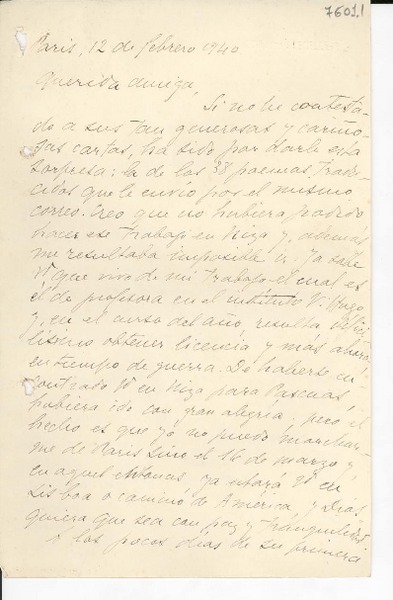 7601.1
Paris, 12 de febrero 1940
Querida amiga,
Si no he contesta-
do a sus tan generosas y cariño-
sas cartas, ha sido por darle esta
sorpresa: la de los 38 poemas tradu-
cidos que le envío por el mismo
correo. Creo que no hubiera podido
hacer ese trabajo en Niza y, además
me resultaba imposible ir. Ya sabe
Vd que vivo de mi trabajo el cual es
el de profesora en el instituto V. Hugo
y, en el curso del año, resulta difici-
lísimo obtener licencia y más ahora,
en tiempo de guerra. De haberse en-
contrado Vd en Niza para Pascuas,
hubiera ido con gran alegría, pero el
hecho es que yo no puedo marchar-
me de Paris sino el 16 de marzo y
en aquel entonces ya estará Vd en
Lisboa o camino de América, y Dios
quiera que sea con paz y tranquilidad
A los pocos días de su primera